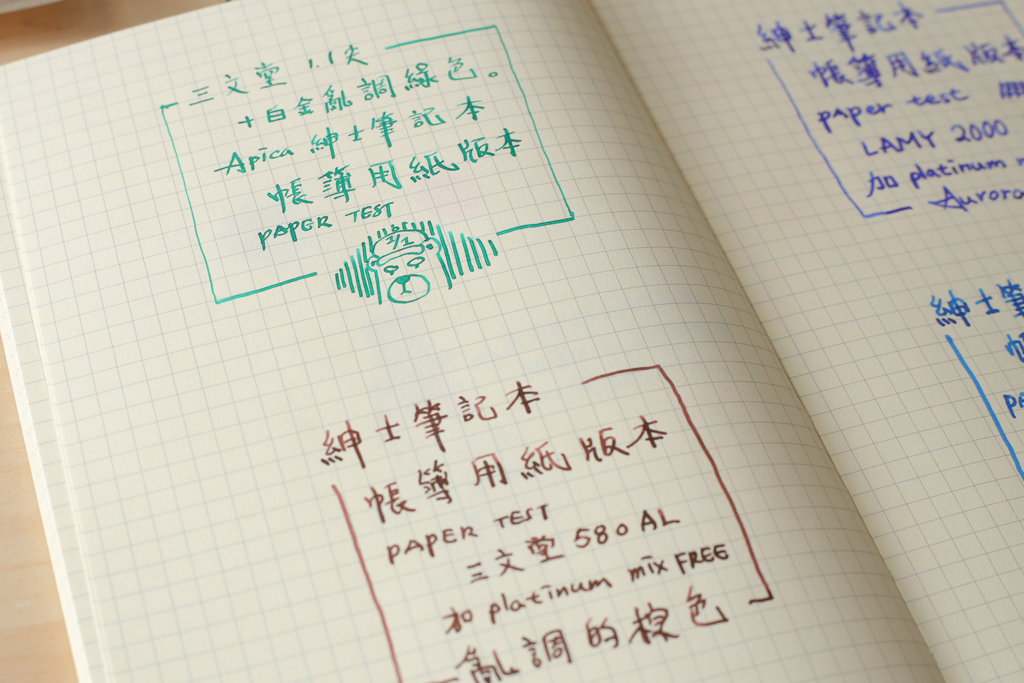 三文堂 1.1尖
+白金亂調綠色。
Apica 紳士筆記本
帳簿用紙版本
PAPER TEST
1/1
紳士筆記本
帳簿用紙版本
PAPER TEST
三文堂 580 AL
加 platinum mix FREE
亂調的棕色
紳士筆記本
帳簿用紙版本
paper test
LAMY 2000
加 platinum
Aurora
紳士筆